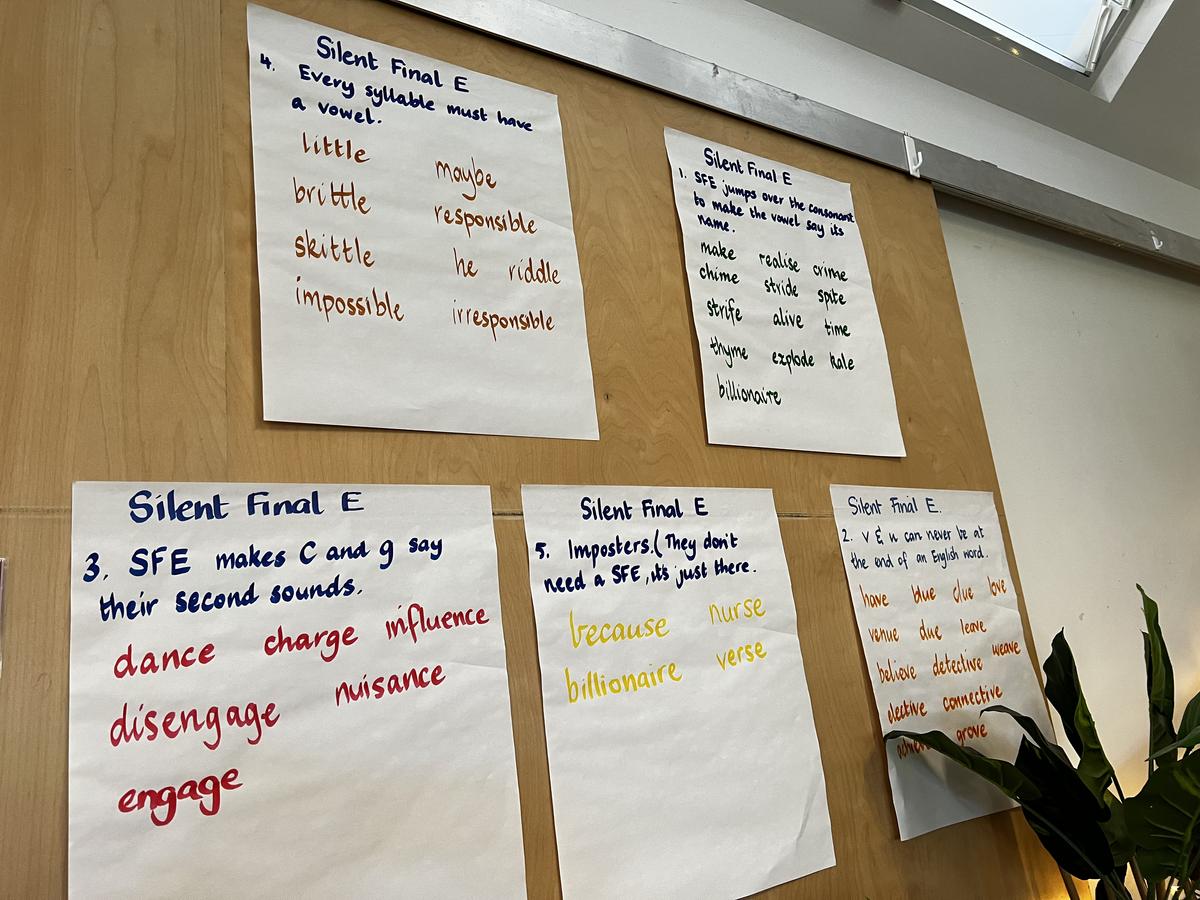 Silent Final E
4. Every syllable must have
a vowel.
little maybe
brittle responsible
skittle he riddle
impossible irresponsible
Silent Final E
1. SFE jumps over the consonant
to make the vowel say its
name.
make realise crime
chime stride spite
strife alive time
thyme explode kale
billionaire
Silent Final E
3. SFE makes C and g say
their second sounds.
dance charge influence
disengage nuisance
engage
Silent Final E
5. Imposters.(They don't
need a SFE, its just there.
because nurse
billionaire verse
Silent Final E.
2. v & u can never be at
the end of an English word.
have blue clue love
venue due leave
believe detective weave
elective connective
grove